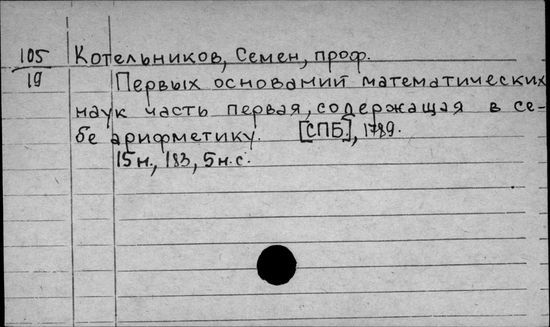 105 Котельников, Семен, проф.
19 Первых оснований математических
наук часть первая, содержащая в се-
бе арифметику. [СПБ.], 1789.
15н., 183, 5н.с.